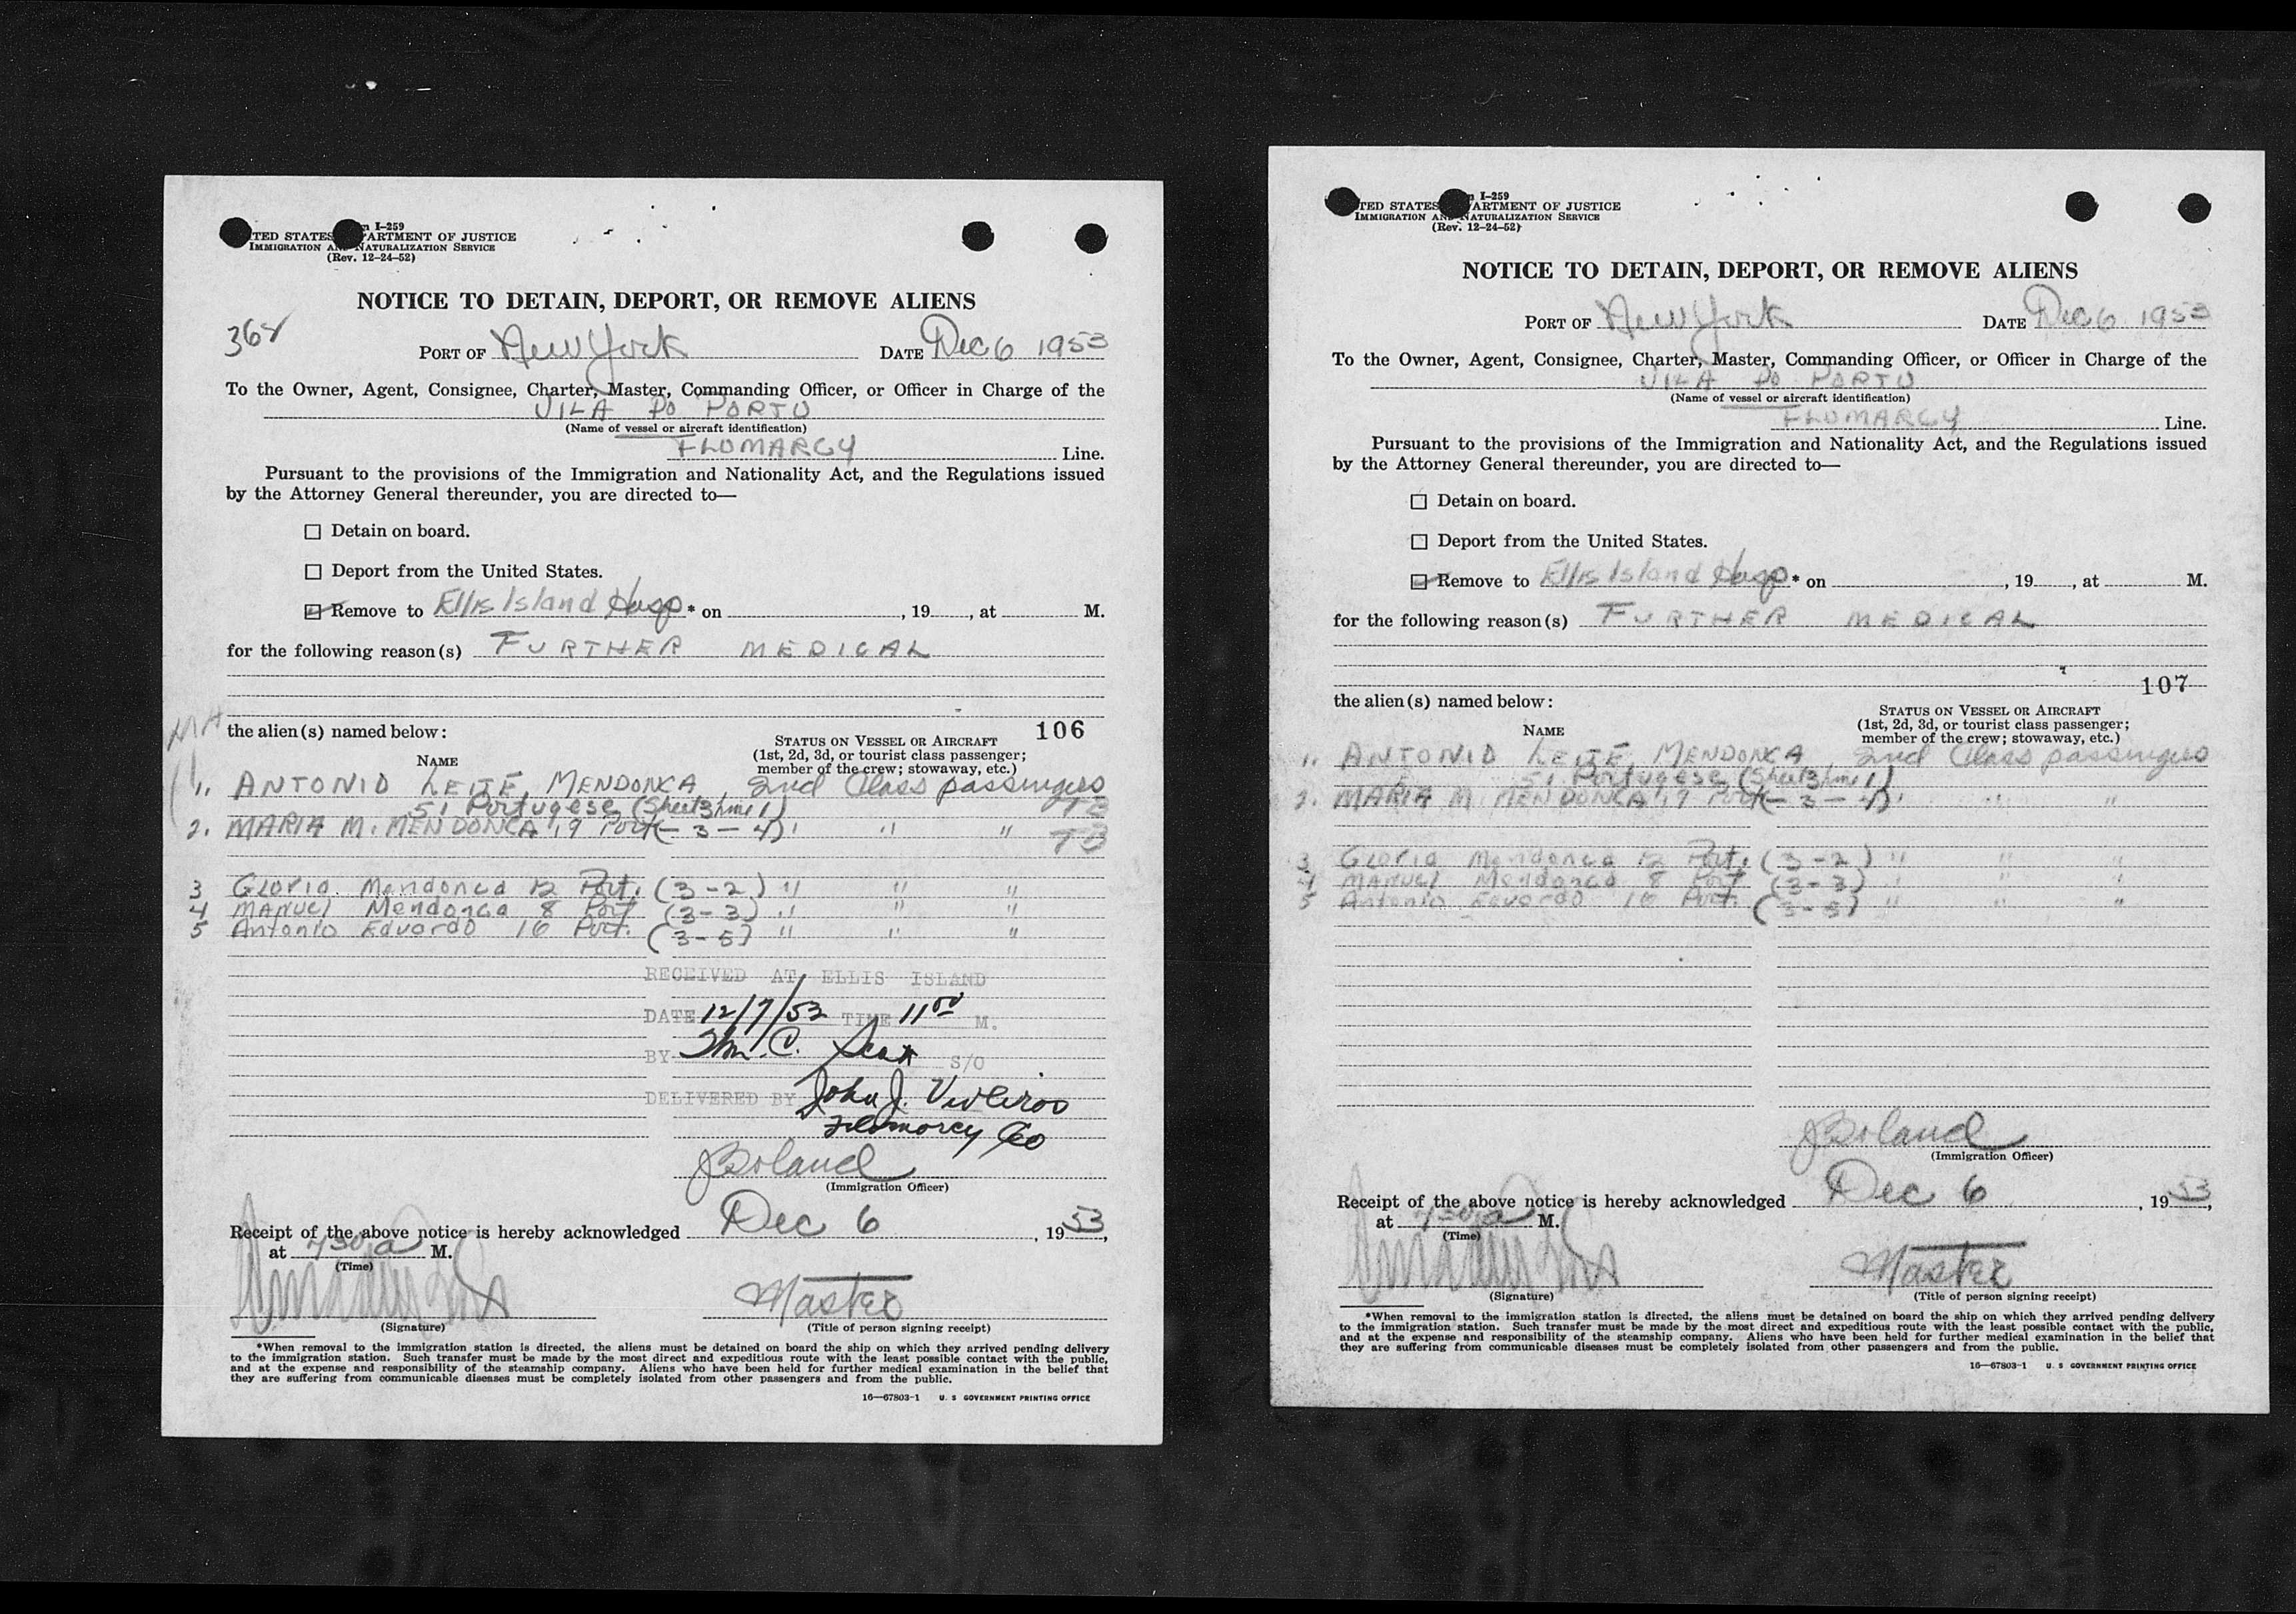 Form I-259
UNITED STATES DEPARTMENT OF JUSTICE
IMMIGRATION AND NATURALIZATION SERVICE
(Rev. 12-24-52)
NOTICE TO DETAIN, DEPORT, OR REMOVE ALIENS
PORT OF New York DATE Dec 6 1953
To the Owner, Agent, Consignee, Charter, Master, Commanding Officer, or Officer in Charge of the
VILA DO PORTO
(Name of vessel or aircraft identification)
FLOMARCY Line.
Pursuant to the provisions of the Immigration and Nationality Act, and the Regulations issued
by the Attorney General thereunder, you are directed to—
Detain on board.
Deport from the United States.
Remove to Ellis Island Hosp * on , 19 , at M.
for the following reason(s) FURTHER MEDICAL
106
the alien(s) named below:
NAME
STATUS ON VESSEL OR AIRCRAFT
(1st, 2d, 3d, or tourist class passenger;
member of the crew; stowaway, etc.)
1. ANTONIO LEITE, MENDONCA, 2nd Class passengers
51 Portugese (Sheet 3 line 1) TB
2. MARIA M. MENDONCA 19 Port (- 3 - 4) " " " TB
3 Gloria Mendonca 12 Port. (3-2) " " "
4 Manuel Mendonca 8 Port (3-3) " " "
5 Antonio Eduardo 16 Port. (3-5) " " "
RECEIVED AT ELLIS ISLAND
DATE 12/7/53 TIME 11 00 M.
BY Wm. C. Scott S/O
DELIVERED BY John J. Vivleiros
Flomarcy Co
JBoland
(Immigration Officer)
Receipt of the above notice is hereby acknowledged Dec 6 , 1953,
at 730 a M.
(Time)
Master
(Signature)
(Title of person signing receipt)
*When removal to the immigration station is directed, the aliens must be detained on board the ship on which they arrived pending delivery
to the immigration station. Such transfer must be made by the most direct and expeditious route with the least possible contact with the public,
and at the expense and responsibility of the steamship company. Aliens who have been held for further medical examination in the belief that
they are suffering from communicable diseases must be completely isolated from other passengers and from the public.
16—67803-1 U. S GOVERNMENT PRINTING OFFICE
Form I-259
UNITED STATES DEPARTMENT OF JUSTICE
IMMIGRATION AND NATURALIZATION SERVICE
(Rev. 12-24-52)
NOTICE TO DETAIN, DEPORT, OR REMOVE ALIENS
PORT OF New York DATE Dec 6 1953
To the Owner, Agent, Consignee, Charter, Master, Commanding Officer, or Officer in Charge of the
VILA DO PORTO
(Name of vessel or aircraft identification)
FLOMARCY Line.
Pursuant to the provisions of the Immigration and Nationality Act, and the Regulations issued
by the Attorney General thereunder, you are directed to—
Detain on board.
Deport from the United States.
Remove to Ellis Island Hosp * on , 19 , at M.
for the following reason(s) FURTHER MEDICAL
107
the alien(s) named below:
NAME
STATUS ON VESSEL OR AIRCRAFT
(1st, 2d, 3d, or tourist class passenger;
member of the crew; stowaway, etc.)
1. ANTONIO LEITE, MENDONCA, 2nd Class passengers
51 Portugese (Sheet 3 line 1)
2. MARIA M. MENDONCA 19 Port (- 3 - 4) " " "
3 Gloria Mendonca 12 Port. (3-2) " " "
4 Manuel Mendonca 8 Port (3-3) " " "
5 Antonio Eduardo 16 Port. (3-5) " " "
JBoland
(Immigration Officer)
Receipt of the above notice is hereby acknowledged Dec 6 , 1953,
at 730 a M.
(Time)
Master
(Signature)
(Title of person signing receipt)
*When removal to the immigration station is directed, the aliens must be detained on board the ship on which they arrived pending delivery
to the immigration station. Such transfer must be made by the most direct and expeditious route with the least possible contact with the public,
and at the expense and responsibility of the steamship company. Aliens who have been held for further medical examination in the belief that
they are suffering from communicable diseases must be completely isolated from other passengers and from the public.
16—67803-1 U. S GOVERNMENT PRINTING OFFICE